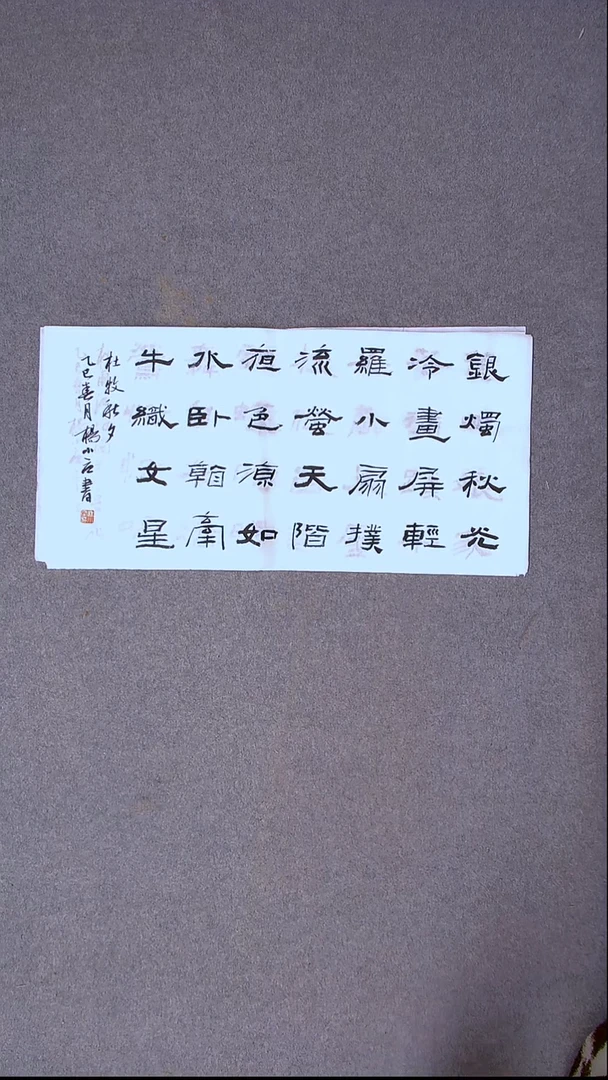 銀燭秋光
冷畫屏輕
羅小扇撲
流螢天階
夜色涼如
水卧看牽
牛織女星
杜牧秋夕
乙巳春月楊小石書